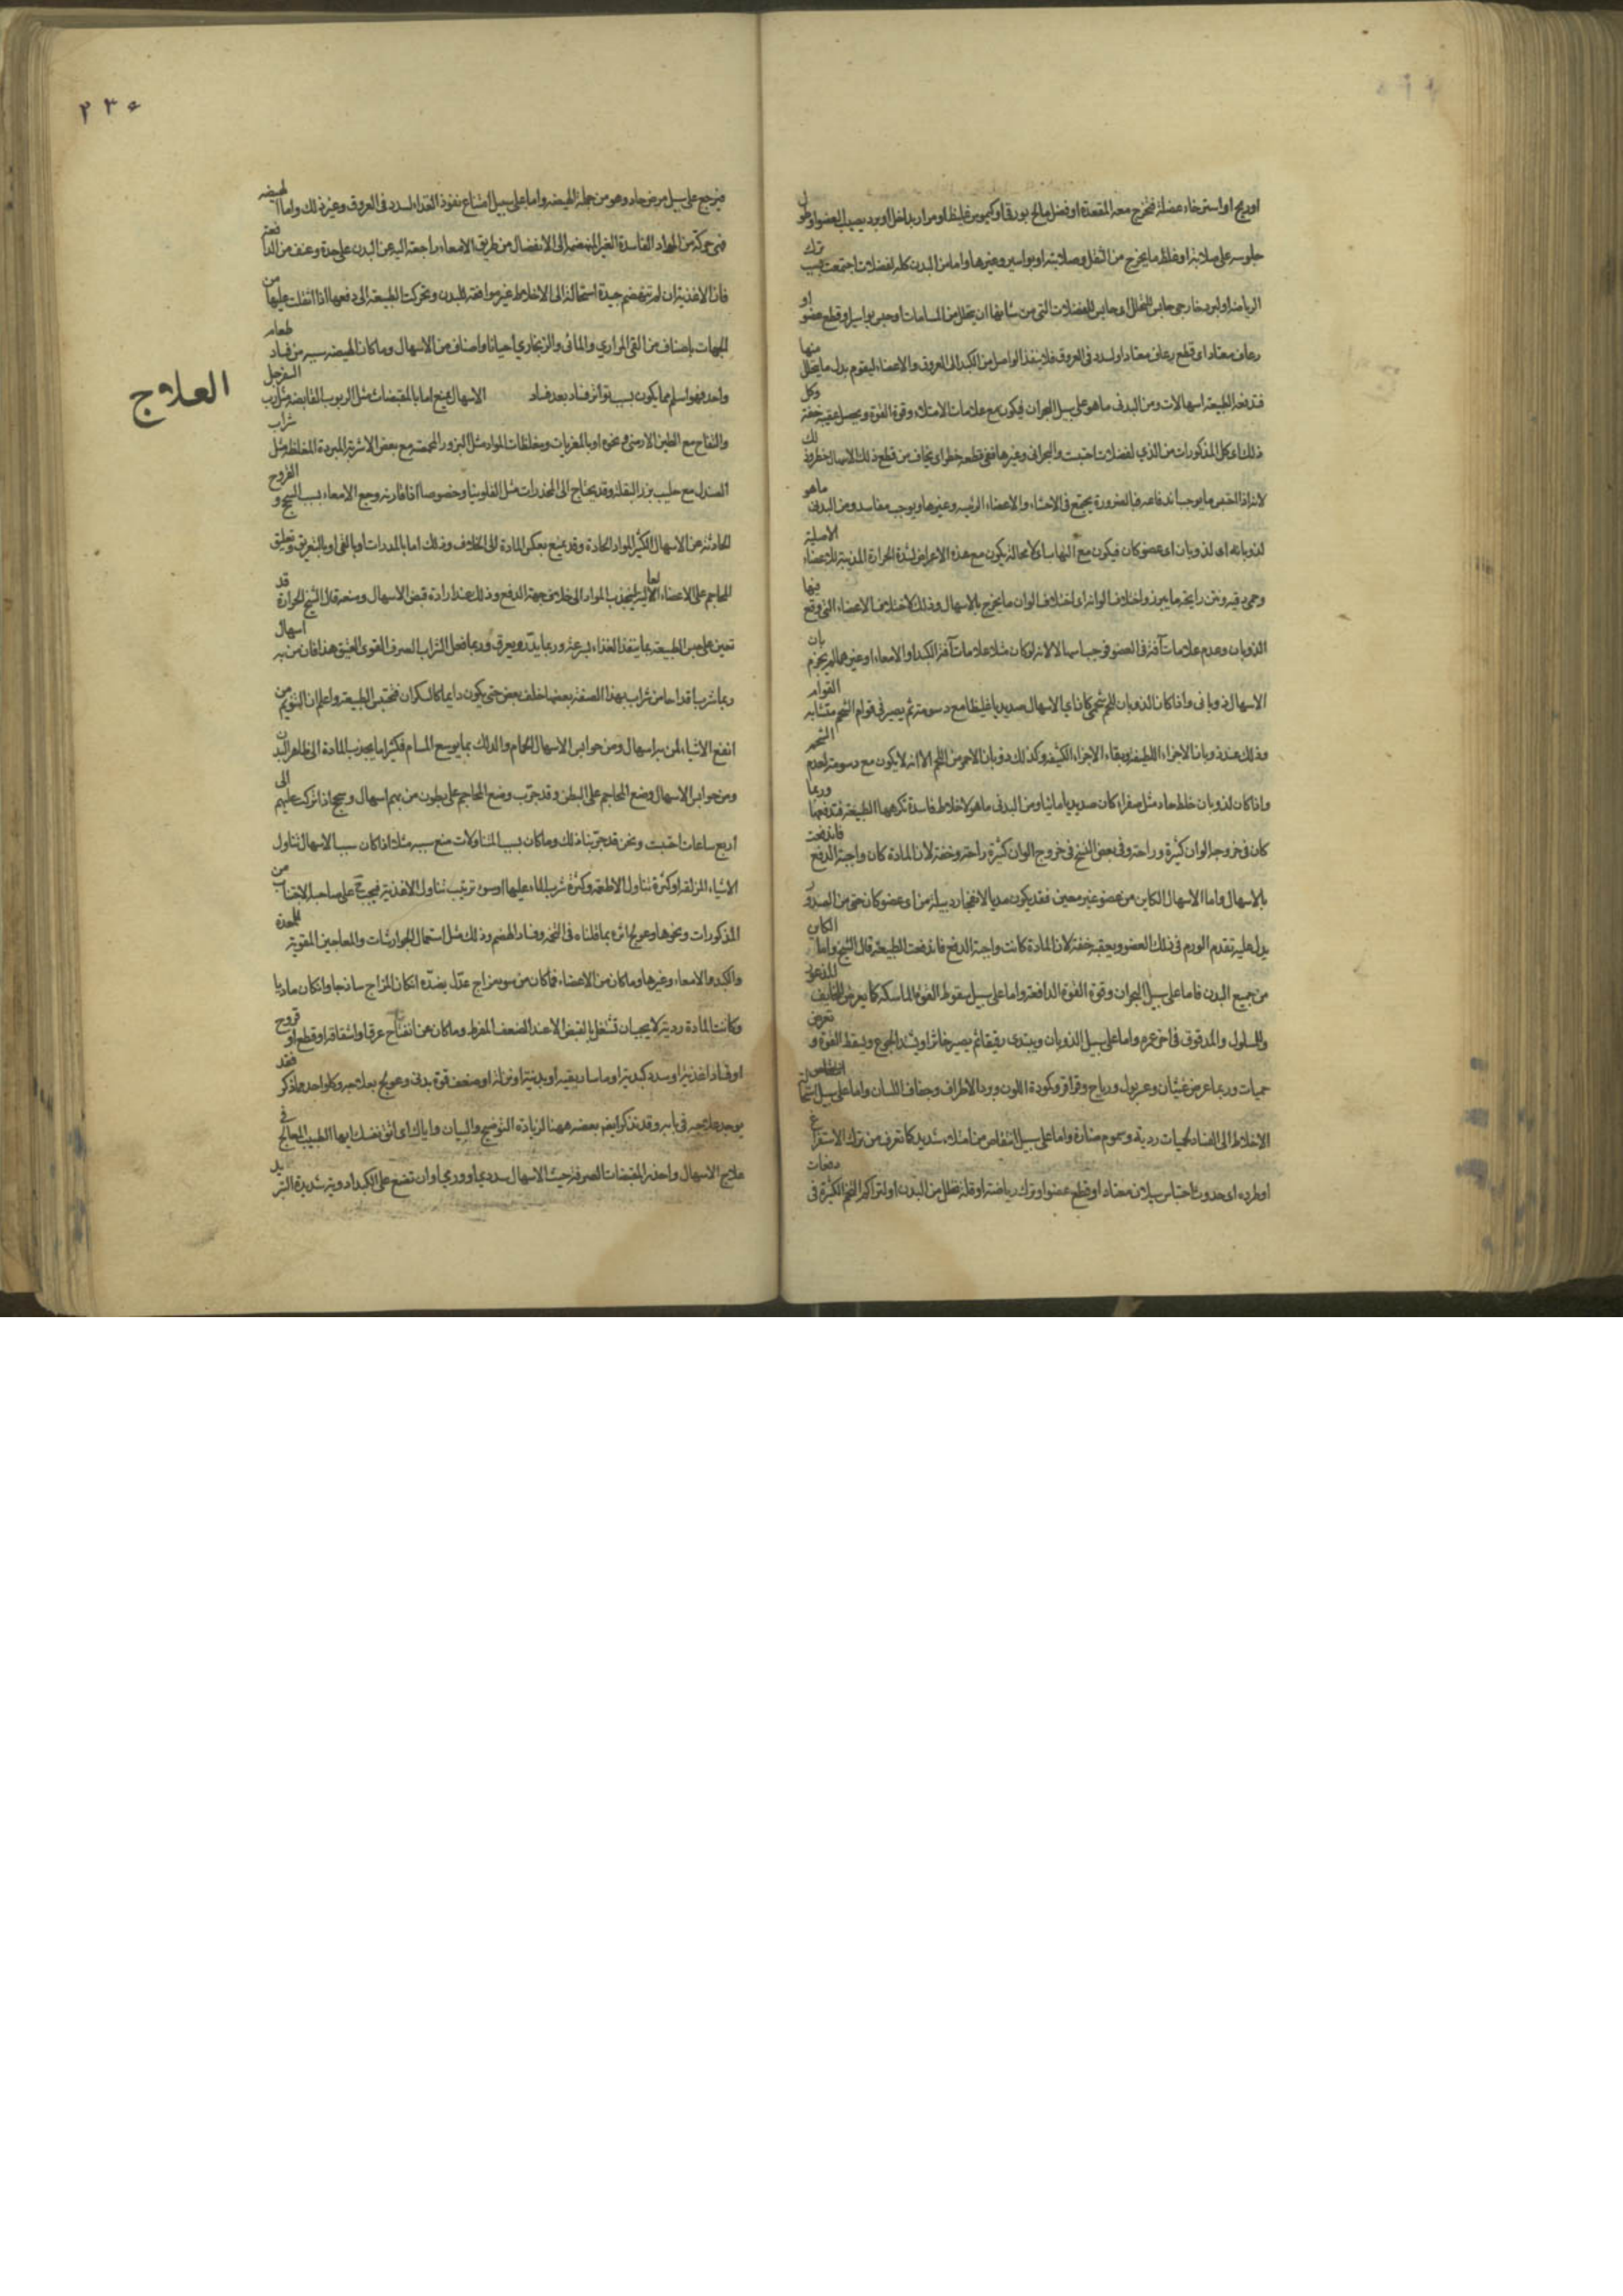 اوريح او استرخاء عضلة فتخرج معه المقعدة او فضل مالح بورقى او كيموس غليظ او مرار بداخل او برد يصيب العضو او طول
جلوسه على صلابة او غلظ ما يخرج من الثفل وصلابته او بواسير وغيرها واما من البدن كله لفضلات اجتمعت بسبب ترك
الرياضة او لبرد خارجى حابس للتحلل اى حابس للفضلات التى من شانها ان يتحلل من المسامات او حبس بواسير او قطع عضو او
رعاف معتاد اى قطع رعاف معتاد او لسدد فى العروق فلا ينفذ الواصل من الكبد الى العروق والاعضاء ليقوم بدل ما يتحلل منها
فتدفعه الطبيعة اسهالات ومن البدنى ما هو على سبيل البحران فيكون مع علامات الامتلاء وقوة القوة ويحصل عقيبه خفة وكل
ذلك اى كل المذكورات من الذي لفضلات احتبست والبحرانى وغيرها ففى قطعه خطر اى يخاف من قطع ذلك الاسهال خطر
لانه اذا احتبس ما يوجب اندفاعه فبالضرورة يجتمع فى الاحشاء والاعضاء الرئيسه وغيرها ويوجب مفاسد ومن البدنى ماهو
لذوبانه اى لذوبان اى عضو كان فيكون مع التهاب لا محالة يكون مع هذه الاعراض لشدة الحرارة المذيبة للاعضاء الاصلية
وحمى دقيه ونتن رايحة ما يبرز واختلاف الوانه اى اختلاف الوان ما يخرج بالاسهال وذلك لاختلاف الاعضاء التى وقع فيها
الذوبان وعدم علامات آفة فى العضو فوجب اسهالا لانه لو كان مثلا علامات آفة الكبد او الامعاء او غيرهما لم يجزم بان
الاسهال ذوبانى واذا كان الذوبان للحم شحمى كان اى الاسهال صديديا غليظا مع دسومة ثم يصير فى قوام الشحم متشابه القوام
وذلك عند ذوبان الاجزاء اللطيفة وبقاء الاجزاء الكثيفة وكذلك ذوبان الاحمر من اللحم الا انه لا يكون مع دسومة لعدم الشحم
واذا كان لذوبان خلط حاد مثل صفراء كان صديديا مائيا ومن البدنى ما هو لاخلاط فاسدة تكرهها الطبيعة فتدفعها وربما
كان فى خروجه الوان كثيرة وراحة وفى بعض النسخ فى خروج الوان كثيرة راحة وخفة لان المادة كان واجبة الدفع فاندفعت
بالاسهال واما الاسهال الكاين من عضو غير معين فقد يكون مديا لانفجار دبيلة من اى عضو كان حتى من الصدر و
يدل عليه تقدم الورم فى ذلك العضو ويعقبه خفة لان المادة كانت واجبة الدفع فاندفعت الطبيعة قال الشيخ واما الكاين
من جميع البدن فاما على سبيل البحران وقوة القوة الدافعة واما على سبيل سقوط القوة الماسكة كما يعرض للخايف المذعور
وللسلول والمدقوق فى اخر عمره واما على سبيل الذوبان ويبتدى رقيقا ثم يصير خاثرا ويشتد الجوع ويسقط القوة و تعرض
حميات وربما عرض غثيان وعسر بول ورياح وقراقر وكمودة اللون وبرد الاطراف وجفاف اللسان واما على سبيل استحالة
الاخلاط الى الفساد لحميات ردية وسموم ضارة واما على سبيل انتفاض من امتلاء شديد كما تعرف من ترك الاستفراغ
او طرده اى حدوث احتباس سيلان معتاد او قطع عضو او ترك رياضة او قلة تحلل من البدن او لتراكم التخم الكثيرة فى دفعات
٢٣٥
فيرجع على سبيل مرض حاد وهو من جملة الهيضه واما على سبيل امتناع نفوذ الغذاء لسدد فى العروق وغير ذلك واما الهيضه
فهى حركة من المواد الفاسدة الغير المنهضمة الى الانفصال من طريق الامعاء راجعة اليه عن البدن على حدة وعنف من الدافعة
فان الاغذية ان لم تنهضم جيدة استحالت الى الاخلاط غير موافقة للبدن وتحركت الطبيعة الى دفعها اذا ثقلت عليها من
الجهات باصناف من القى المراري والمائى والزنجاري احيانا واصناف من الاسهال وما كان الهيضه سببه من فساد طعام
واحد فهو اسلم مما يكون بسبب تواتر فساد بعد فساد الاسهال يمنع اما بالمقبضات مثل الربوب القابضة مثل رب السفرجل
العلاج
والتفاح مع الطين الارمنى ونحوه او بالمغريات ومغلظات المواد مثل البزور المحمصة مع بعض الاشربة المبردة المغلظة مثل شراب
الصندل مع حليب بزر البقلة وقد يحتاج الى المخدرات مثل الفلونيا وخصوصا اذا قارنه وجع الامعاء بسبب السحج و القروح
الحادثة عن الاسهال الكثير المواد الحادة وقد يمنع بعكس المادة الى الخلاف وذلك اما بالمدرات او بالقى او بالتعريق وتعليق
المحاجم على الاعضاء العاليه ليجذب المواد الى خلاف جهة الدفع وذلك عند ارادة قبض الاسهال ومنعه قال الشيخ الحرارة قد
تعين على حبس الطبيعة بما ينفذ الغذاء بسرعة وربما يدر ويعرق وربما فعل الشراب الصرف القوى العتيق هذا فان من به اسهال
ربما شرب اقداحا من شراب بهذا الصفة بعضها خلف بعض حتى يكون دايما كالسكران فتحتبس الطبيعة واعلم ان التنويم من
انفع الاشياء لمن به اسهال ومن حوابس الاسهال الحمام والدلك بما يوسع المسام فكثيرا ما يجذب المادة الى ظاهر البدن
ومن حوابس الاسهال وضع المحاجم على البطن وقد جرب وضع المحاجم على بطون من بهم اسهال وسحج اذا تركت عليهم الى
اربع ساعات احتبست ونحن قد جربنا ذلك وما كان بسبب المتناولات منع سببه مثلا اذا كان سبب الاسهال تناول
الاشياء المزلقة او كثرة تناول الاطعمة وكثرة شرب الماء عليها او سوء ترتيب تناول الاغذية فيجب على صاحبه الاجتناب من
المذكورات ونحوها وعولج اثره بما قلناه فى التخمة وفساد الهضم وذلك مثل استعمال الجوارشات والمعاجين المقوية للمعدة
والكبد والامعاء وغيرها وما كان من الاعضاء فما كان من سوء مزاج عدّل بضدّه ان كان المزاج ساذجا وان كان ماديا
وكانت المادة ردية لا يجب ان تشتغل بالقبض الا عند الضعف المفرط وما كان من انفتاح عرق او انشقاقه او قطع او قروح
او فساد اغذية او سدد كبدية او ماساريقيه او بدنية او نزلة او ضعف قوة بدنى وعولج بعلاجه وكل واحد مما ذكر فقد
يوجد علاجه فى بابه وقد نذكر ايضا بعضه ههنا لزيادة التوضيح والبيان واياك اى اتق نفسك ايها الطبيب المعالج فى
علاج الاسهال واحذر المقبضات الصرفة حيث الاسهال سددي او ورمي او ان تضع على الكبد ادوية شديدة التبريد